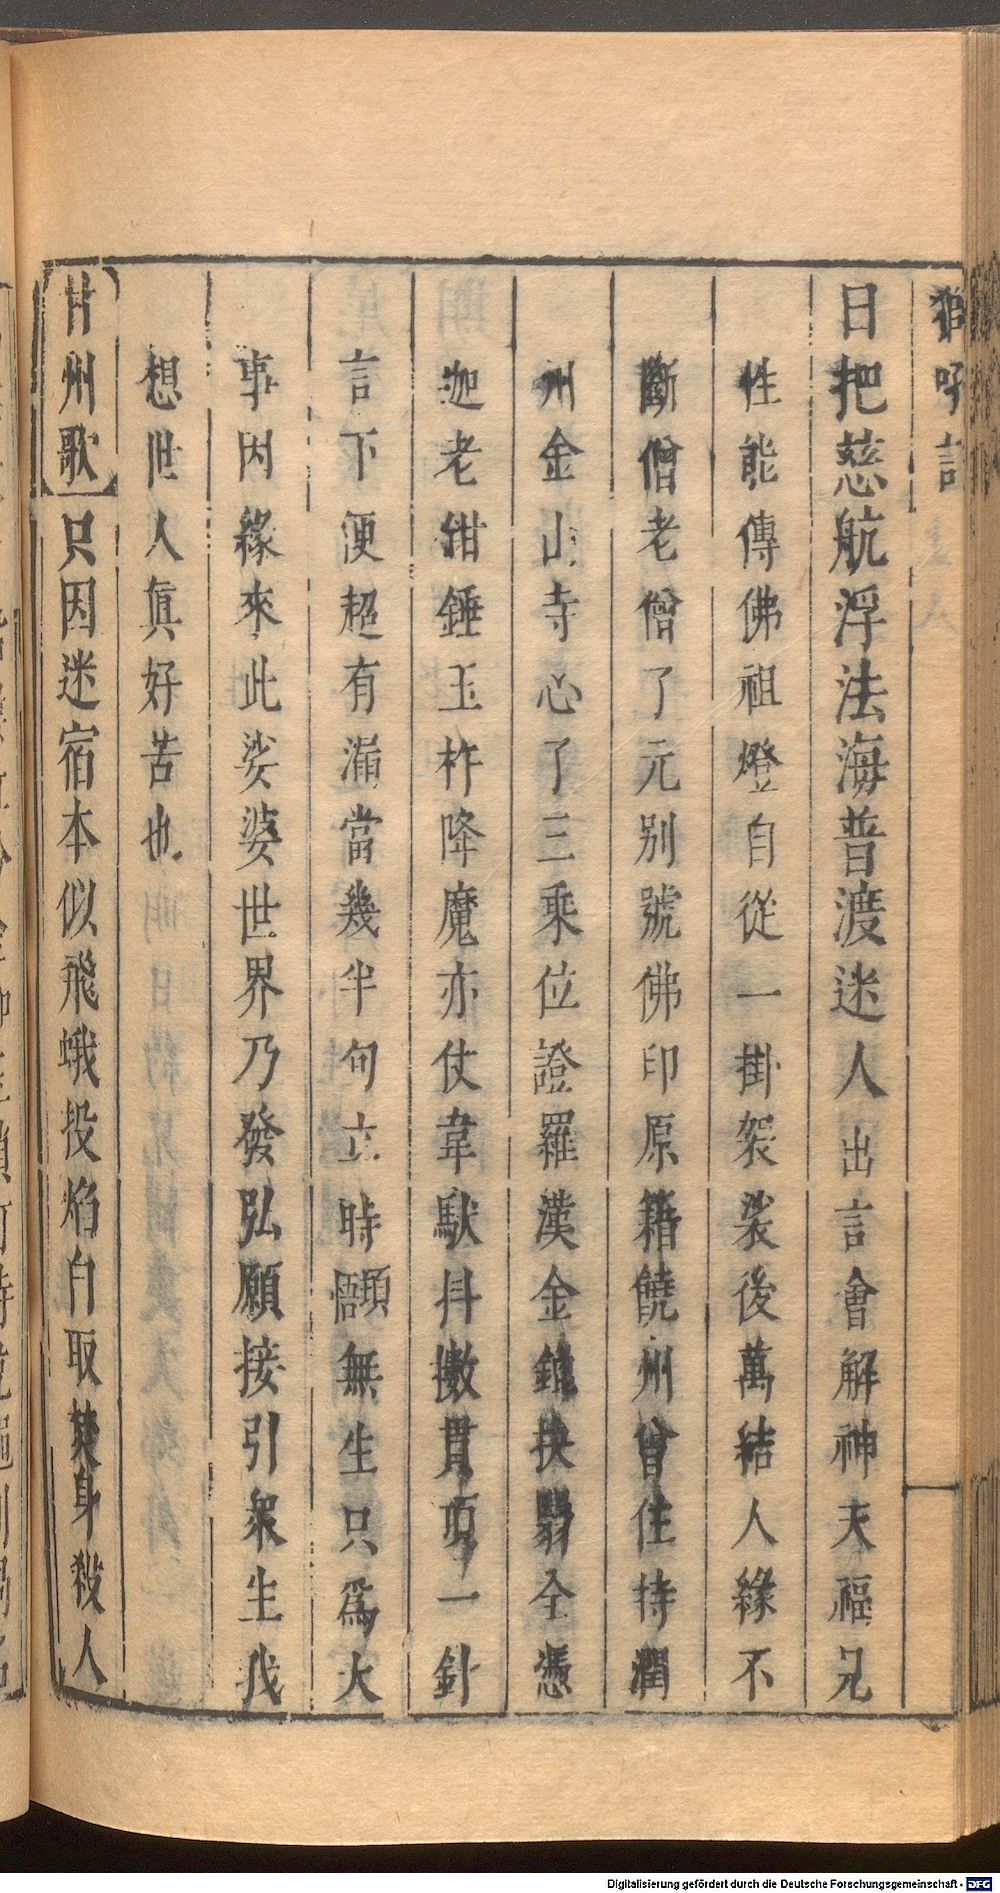 日把慈航浮法海普渡迷人出言會解神天福凡
性能傳佛祖燈自從一掛袈裟後萬結人緣不
斷僧老僧了元別號佛印原籍饒州曾住持潤
州金山寺心了三乘位證羅漢金鎞抉翳全憑
迦老鉗錘玉杵降魔亦仗韋馱抖擻貫頂一針
言下便超有漏當幾半句立時頤無生只爲大
事因緣來此娑婆世界乃發弘願接引衆生我
想世人眞好苦也
甘州歌只因迷宿本似飛蛾投焰自取焚身殺人
Digitalisierung gefördert durch die Deutsche Forschungsgemeinschaft - DFG